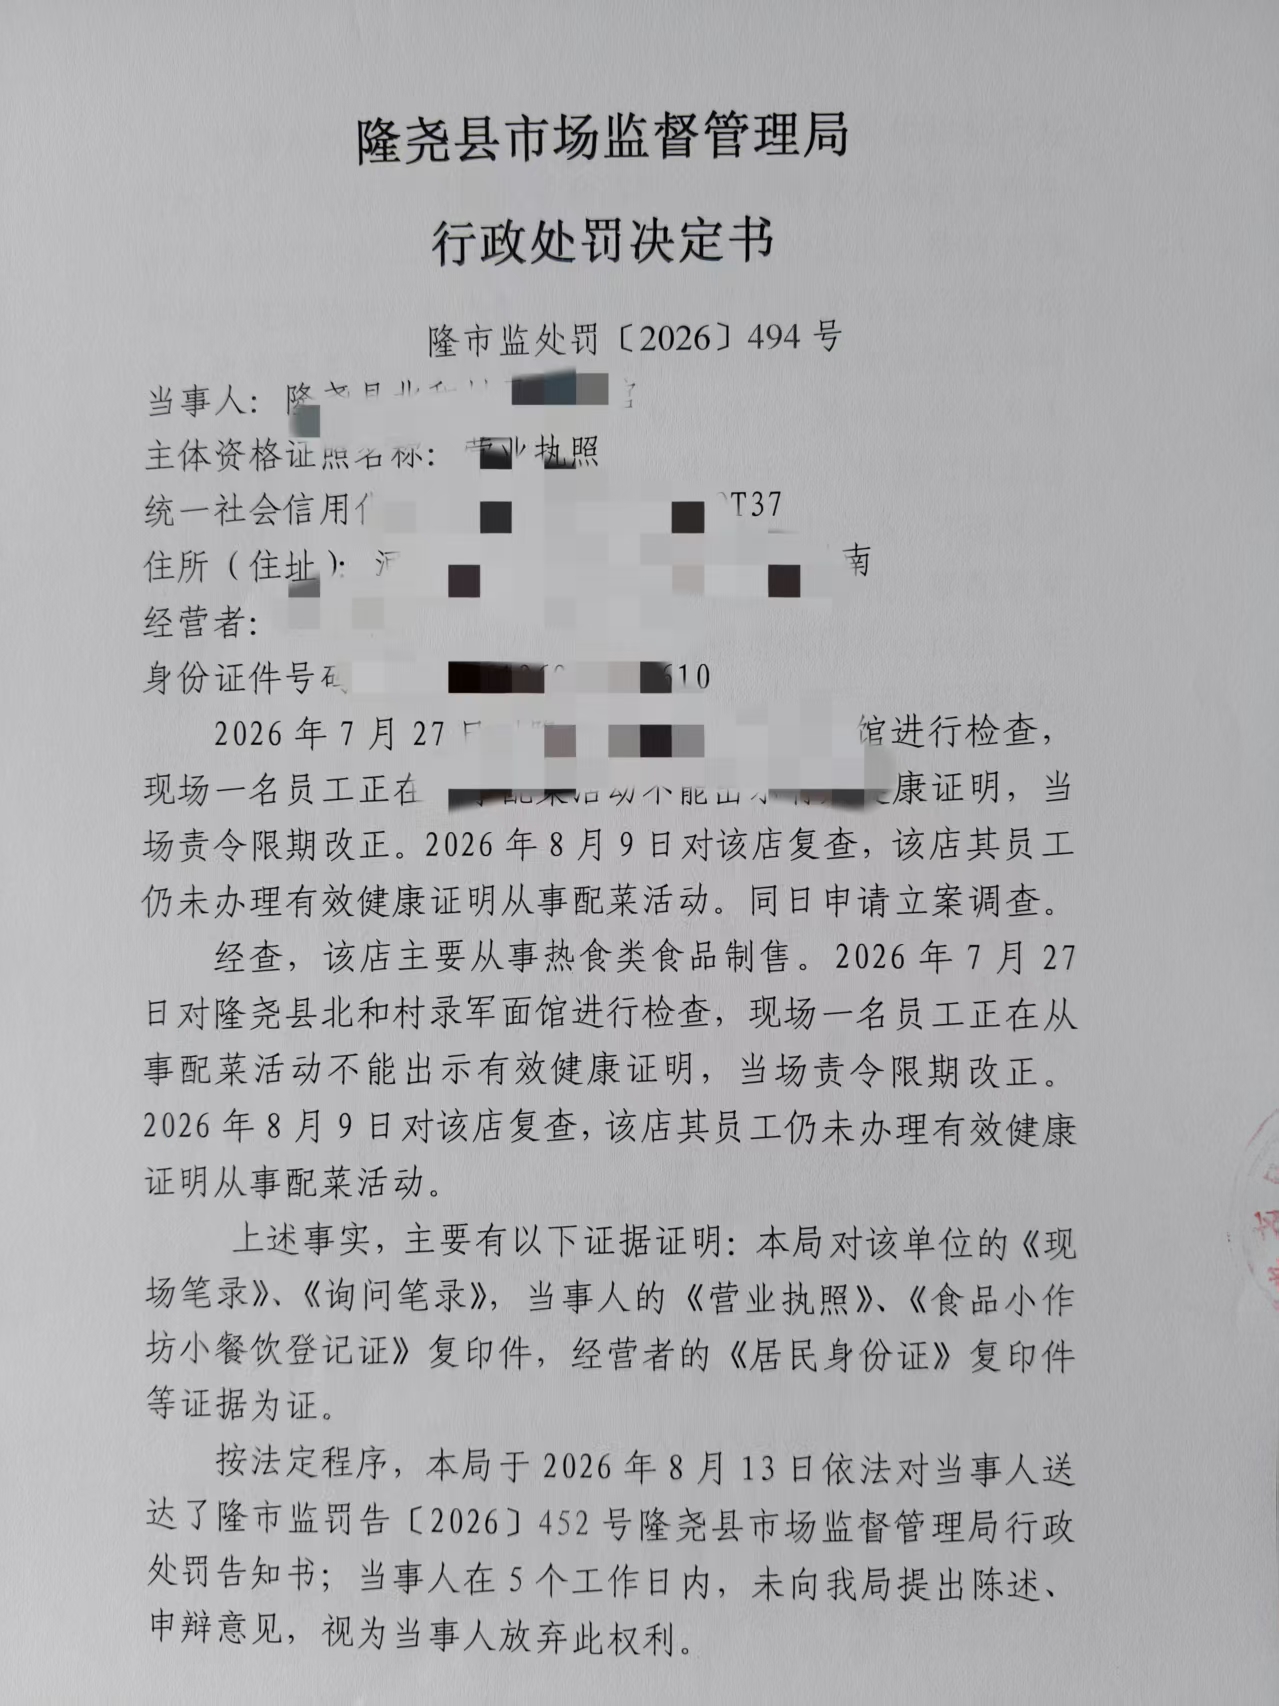 隆尧县市场监督管理局
行政处罚决定书
隆市监处罚〔2026〕494 号
当事人：隆尧县北和村
主体资格证照名称：营业执照
统一社会信用 T37
住所（住址）： 南
经营者：
身份证件号码 610
2026 年 7 月 27 日 馆进行检查，
现场一名员工正在 事配菜活动不能出示有效健康证明，当
场责令限期改正。2026 年 8 月 9 日对该店复查，该店其员工
仍未办理有效健康证明从事配菜活动。同日申请立案调查。
经查，该店主要从事热食类食品制售。2026 年 7 月 27
日对隆尧县北和村录军面馆进行检查，现场一名员工正在从
事配菜活动不能出示有效健康证明，当场责令限期改正。
2026 年 8 月 9 日对该店复查，该店其员工仍未办理有效健康
证明从事配菜活动。
上述事实，主要有以下证据证明：本局对该单位的《现
场笔录》、《询问笔录》，当事人的《营业执照》、《食品小作
坊小餐饮登记证》复印件，经营者的《居民身份证》复印件
等证据为证。
按法定程序，本局于 2026 年 8 月 13 日依法对当事人送
达了隆市监罚告〔2026〕452 号隆尧县市场监督管理局行政
处罚告知书；当事人在 5 个工作日内，未向我局提出陈述、
申辩意见，视为当事人放弃此权利。